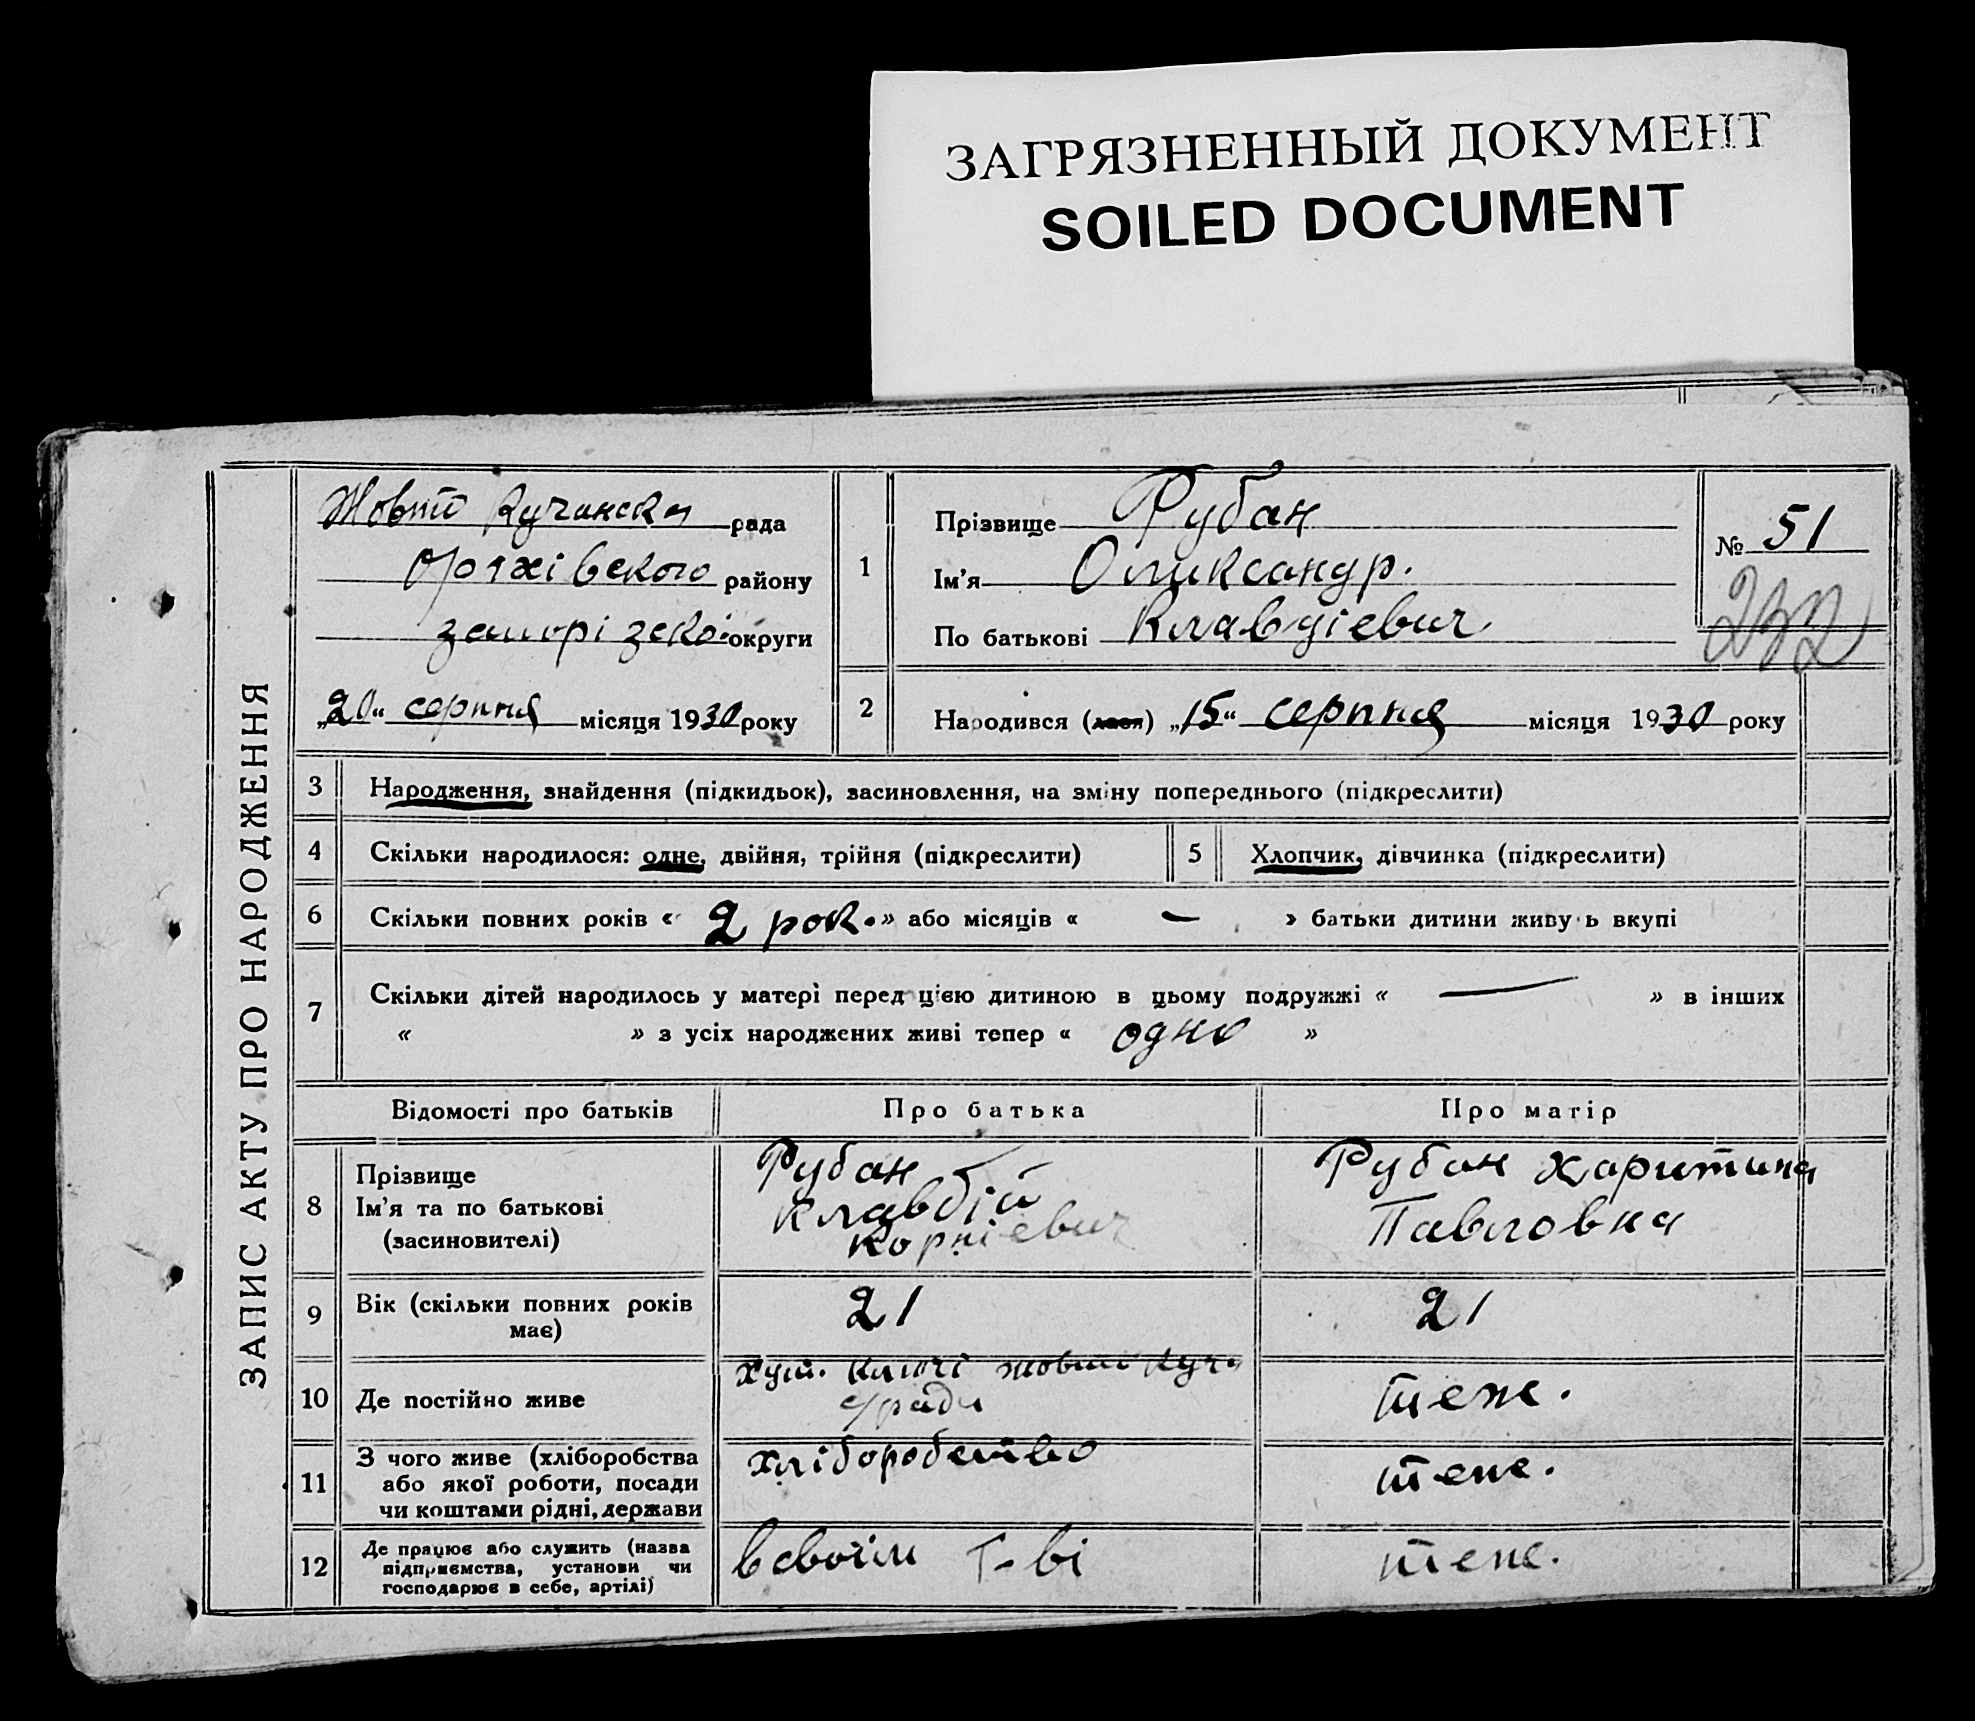 ЗАГРЯЗНЕННЫЙ ДОКУМЕНТ
SOILED DOCUMENT
ЗАПИС АКТУ ПРО НАРОДЖЕННЯ
Жовто Кучанска рада
оріхівского району
запорізскої округи
„20“ серпня місяця 1930 року
1
Прізвище Рубан
Ім'я Оликсандр.
По батькові Клавдіевич
№ 51
232
2
Народився (лася) „15“ серпня місяця 1930 року
3 Народження, знайдення (підкидьок), засиновлення, на зміну попереднього (підкреслити)
4 Скільки народилося: одне, двійня, трійня (підкреслити) 5 Хлопчик, дівчинка (підкреслити)
6 Скільки повних років « 2 рок. » або місяців « — » батьки дитини живуть вкупі
7 Скільки дітей народилось у матері перед цією дитиною в цьому подружжі « — » в інших
« » з усіх народжених живі тепер « одно »
Відомості про батьків Про батька Про матір
8 Прізвище
Ім'я та по батькові
(засиновителі)
Рубан
Клавдій
Корніевич
Рубан Харитина
Павловна
9 Вік (скільки повних років
має)
21 21
10 Де постійно живе
хут. Ключі Жовто Куча
с/ради
теж.
11 З чого живе (хліборобства
або якої роботи, посади
чи коштами рідні, держави
хліборобство
теж.
12 Де працює або служить (назва
підприємства, установи чи
господарює в себе, артілі)
в своїм г-ві
теж.